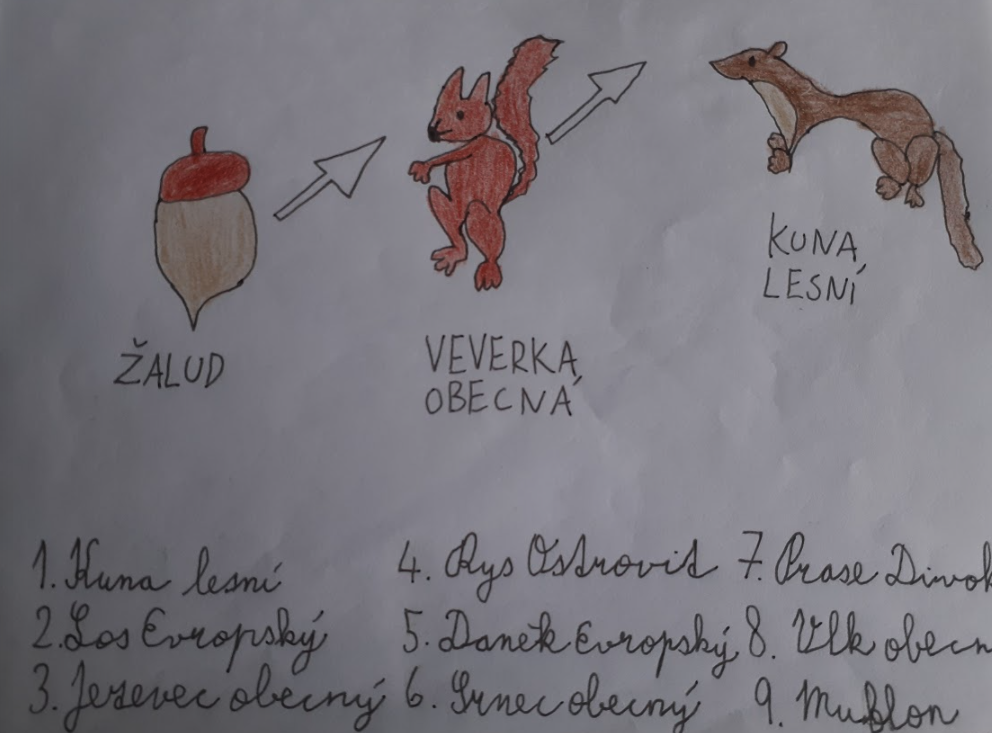 ŽALUD
VEVERKA
OBECNÁ
KUNA
LESNÍ
1. Kuna lesní
2. Los Evropský
3. Jezevec obecný
4. Rys Ostrovid
5. Daněk Evropský
6. Srnec obecný
7. Prase Divok
8. Vlk obecn
9. Muflon